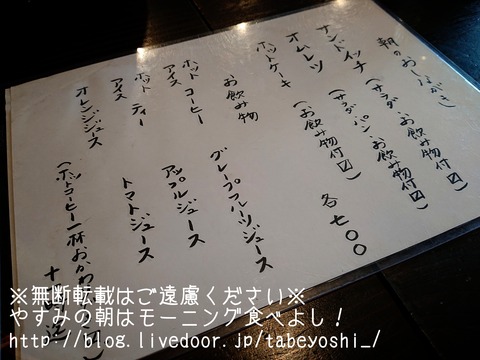 朝のおしながき
サンドイッチ (サラダ・お飲み物付〼)
オムレツ (サラダ・パン・お飲み物付〼)
ホットケーキ (お飲み物付〼)
各七〇〇
お飲み物
ホット コーヒー
アイス
ホット ティー
アイス
オレンジジュース
グレープフルーツジュース
アップルジュース
トマトジュース
(ホットコーヒー一杯おかわり
※無断転載はご遠慮ください※
やすみの朝はモーニング食べよし！
http://blog.livedoor.jp/tabeyoshi_/